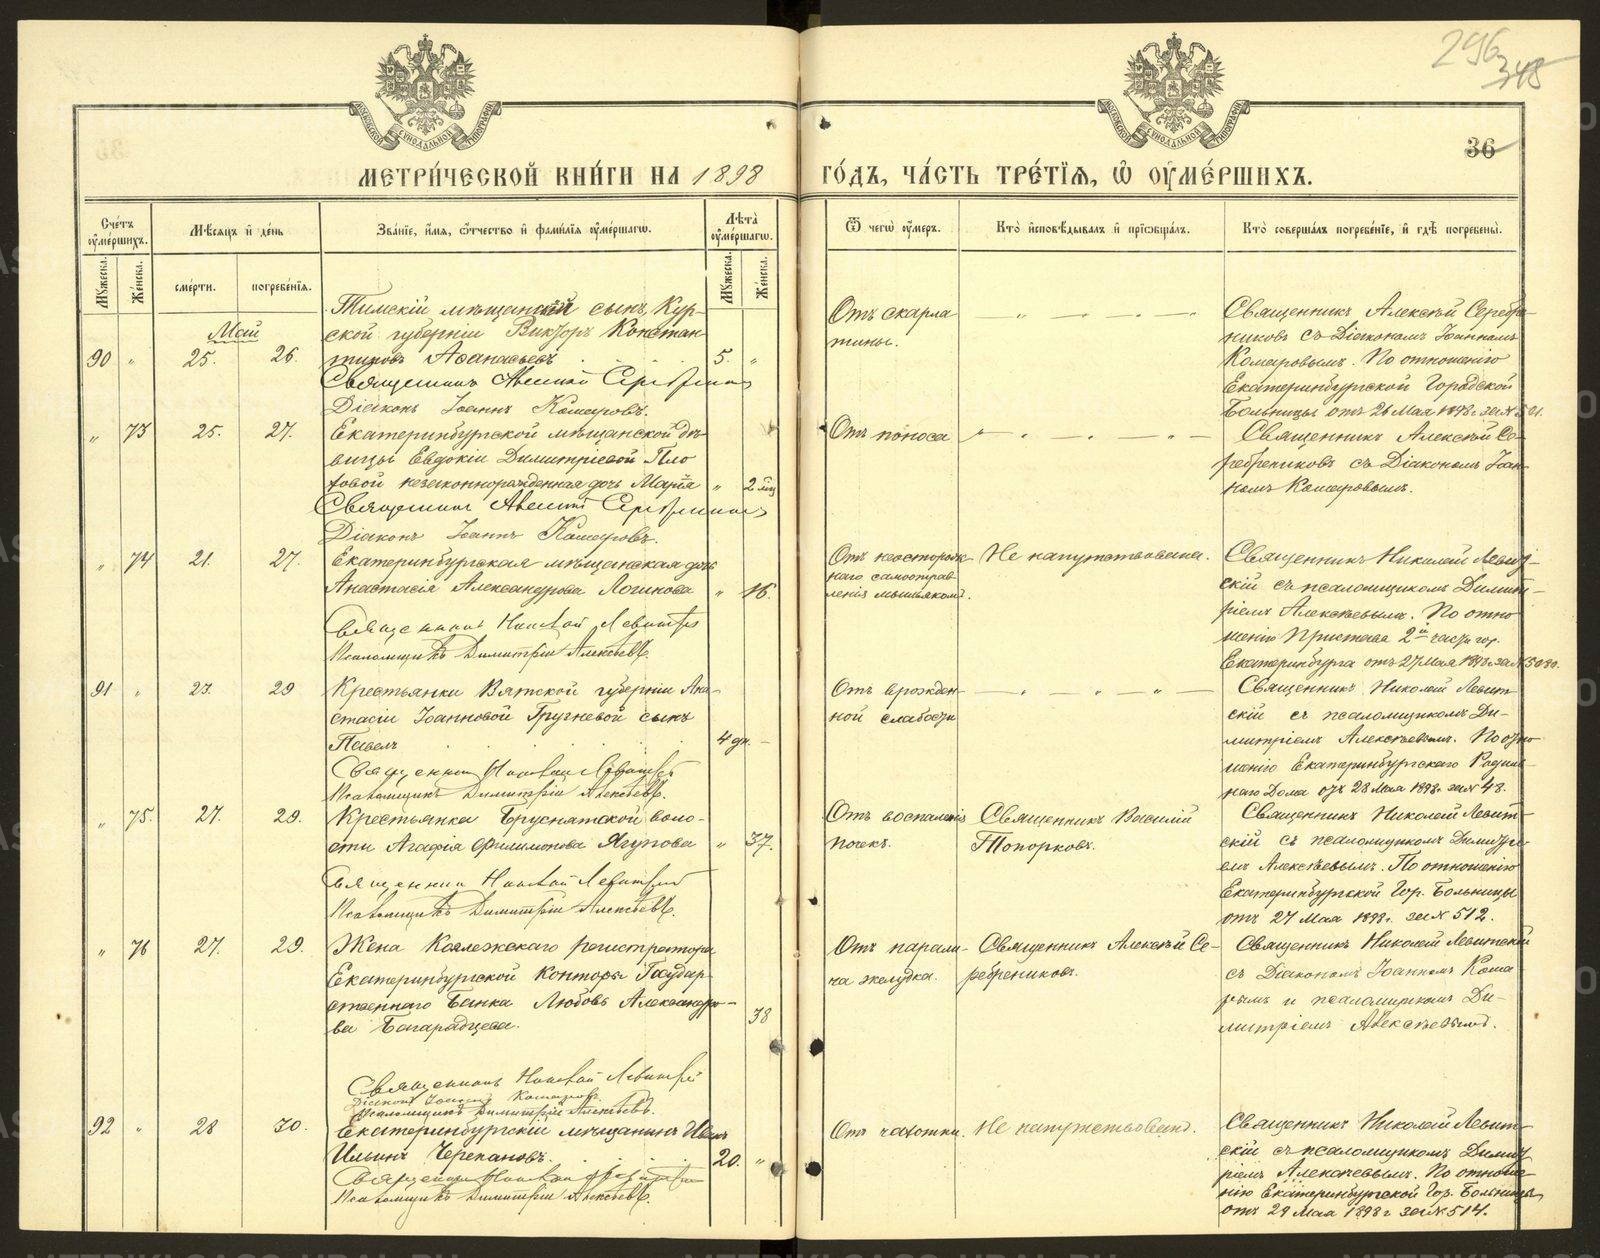 296
348
36
МЕТРИ́ЧЕСКОЙ КНИ́ГИ НА 1898 ГО́ДЪ, ЧА́СТЬ ТРЕ́ТІѦ, Ѽ ОУМЕ́РШИХЪ.
Сче́тъ оуме́ршихъ.
Мѣ́сяцъ и҆ де́нь
Зва́ніе, и҆́мя, ѻ҆́тчество и҆ фами́лія оуме́ршагѡ.
Лѣ́та оуме́ршагѡ.
Ѿ чегѡ̀ оу́меръ.
Кто̀ и҆сповѣ́дывалъ и҆ пріѻбща́лъ.
Кто̀ соверша́лъ погребе́ніе, и҆ гдѣ̀ погребены̀.
Му́жеска.
Же́нска.
сме́рти.
погребе́нія.
Му́жеска.
Же́нска.
Май
90 " 25. 26.
Тимскій мѣщанскій сынъ, Кур-
ской губерніи Викторъ Констан
тиновъ Аѳанасьевъ
5. "
Священникъ Алексій Серебрениковъ
Діаконъ Іоаннъ Комаровъ.
Отъ скарла
тины.
Священникъ Алексѣй Серебре-
никовъ съ Діакономъ Іоанномъ
Комаровымъ. По отношенію
Екатеринбургской Городской
Больницы отъ 26 Мая 1898 г. за №521.
" 73 25. 27.
Екатеринбургской мѣщанской дѣ-
вицы Евдокіи Димитріевой Пло
товой незаконнорожденная дочь Марія
" 2 мц
Священникъ Алексій Серебрениковъ
Діаконъ Іоаннъ Комаровъ.
Отъ поноса
Священникъ Алексѣй Се-
ребрениковъ съ Діакономъ Іоан-
номъ Комаровымъ.
" 74 21. 27.
Екатеринбургская мѣщанская дочь
Анастасія Александрова Логинова
" 16.
Священникъ Николай Левитскій
Псаломщикъ Димитрій Алексѣевъ.
Отъ неосторож-
наго самоотрав-
ленія мышьякомъ.
Не напутствована.
Священникъ Николай Левит-
скій съ псаломщикомъ Димит-
ріемъ Алексѣевымъ. По отно
шенію Пристава 2й части гор.
Екатеринбурга отъ 27 Мая 1898 за №5080.
91 " 23. 29
Крестьянки Вятской губерніи Ана-
стасіи Іоанновой Гручневой сынъ
Павелъ
4 дн. -
Священникъ Николай Левитскій
Псаломщикъ Димитрій Алексѣевъ.
Отъ врожден-
ной слабости
Священникъ Николай Левит-
скій съ псаломщикомъ Ди-
митріемъ Алексѣевымъ. По отно
шенію Екатеринбургскаго Родиль-
наго Дома отъ 28 Мая 1898 г. за № 48.
" 75. 27. 29.
Крестьянка Бруснятской воло-
сти Агафія Филимонова Ягупова
" 37.
Священникъ Николай Левитскій
Псаломщикъ Димитрій Алексѣевъ.
Отъ воспаленія
почекъ.
Священникъ Василій
Топорковъ.
Священникъ Николай Левит-
скій съ псаломщикомъ Димитрі-
емъ Алексѣевымъ. По отношенію
Екатеринбургской Гор. Больницы
отъ 27 Мая 1898 г. за № 512.
" 76 27. 29.
Жена Коллежскаго регистратора
Екатеринбургской Конторы Государ-
ственнаго Банка Любовь Александро-
ва Богарадцева.
38
Священникъ Николай Левитскій
Діаконъ Іоаннъ Комаровъ.
Псаломщикъ Димитрій Алексѣевъ.
Отъ парали-
ча желудка.
Священникъ Алексѣй Се-
ребрениковъ.
Священникъ Николай Левитскій
съ Діакономъ Іоанномъ Кома
рымъ и псаломщикомъ Ди-
митріемъ Алексѣевымъ.
92 " 28 30.
Екатеринбургскій мѣщанинъ Иванъ
Ильинъ Черепановъ.
20. "
Священникъ Николай Левитскій
Псаломщикъ Димитрій Алексѣевъ.
Отъ чахотки.
Не напутствованъ.
Священникъ Николай Левит-
скій съ псаломщикомъ Димит
ріемъ Алексѣевымъ. По отноше-
нію Екатеринбургской Гор. Больницы
отъ 29 Мая 1898 г за № 514.